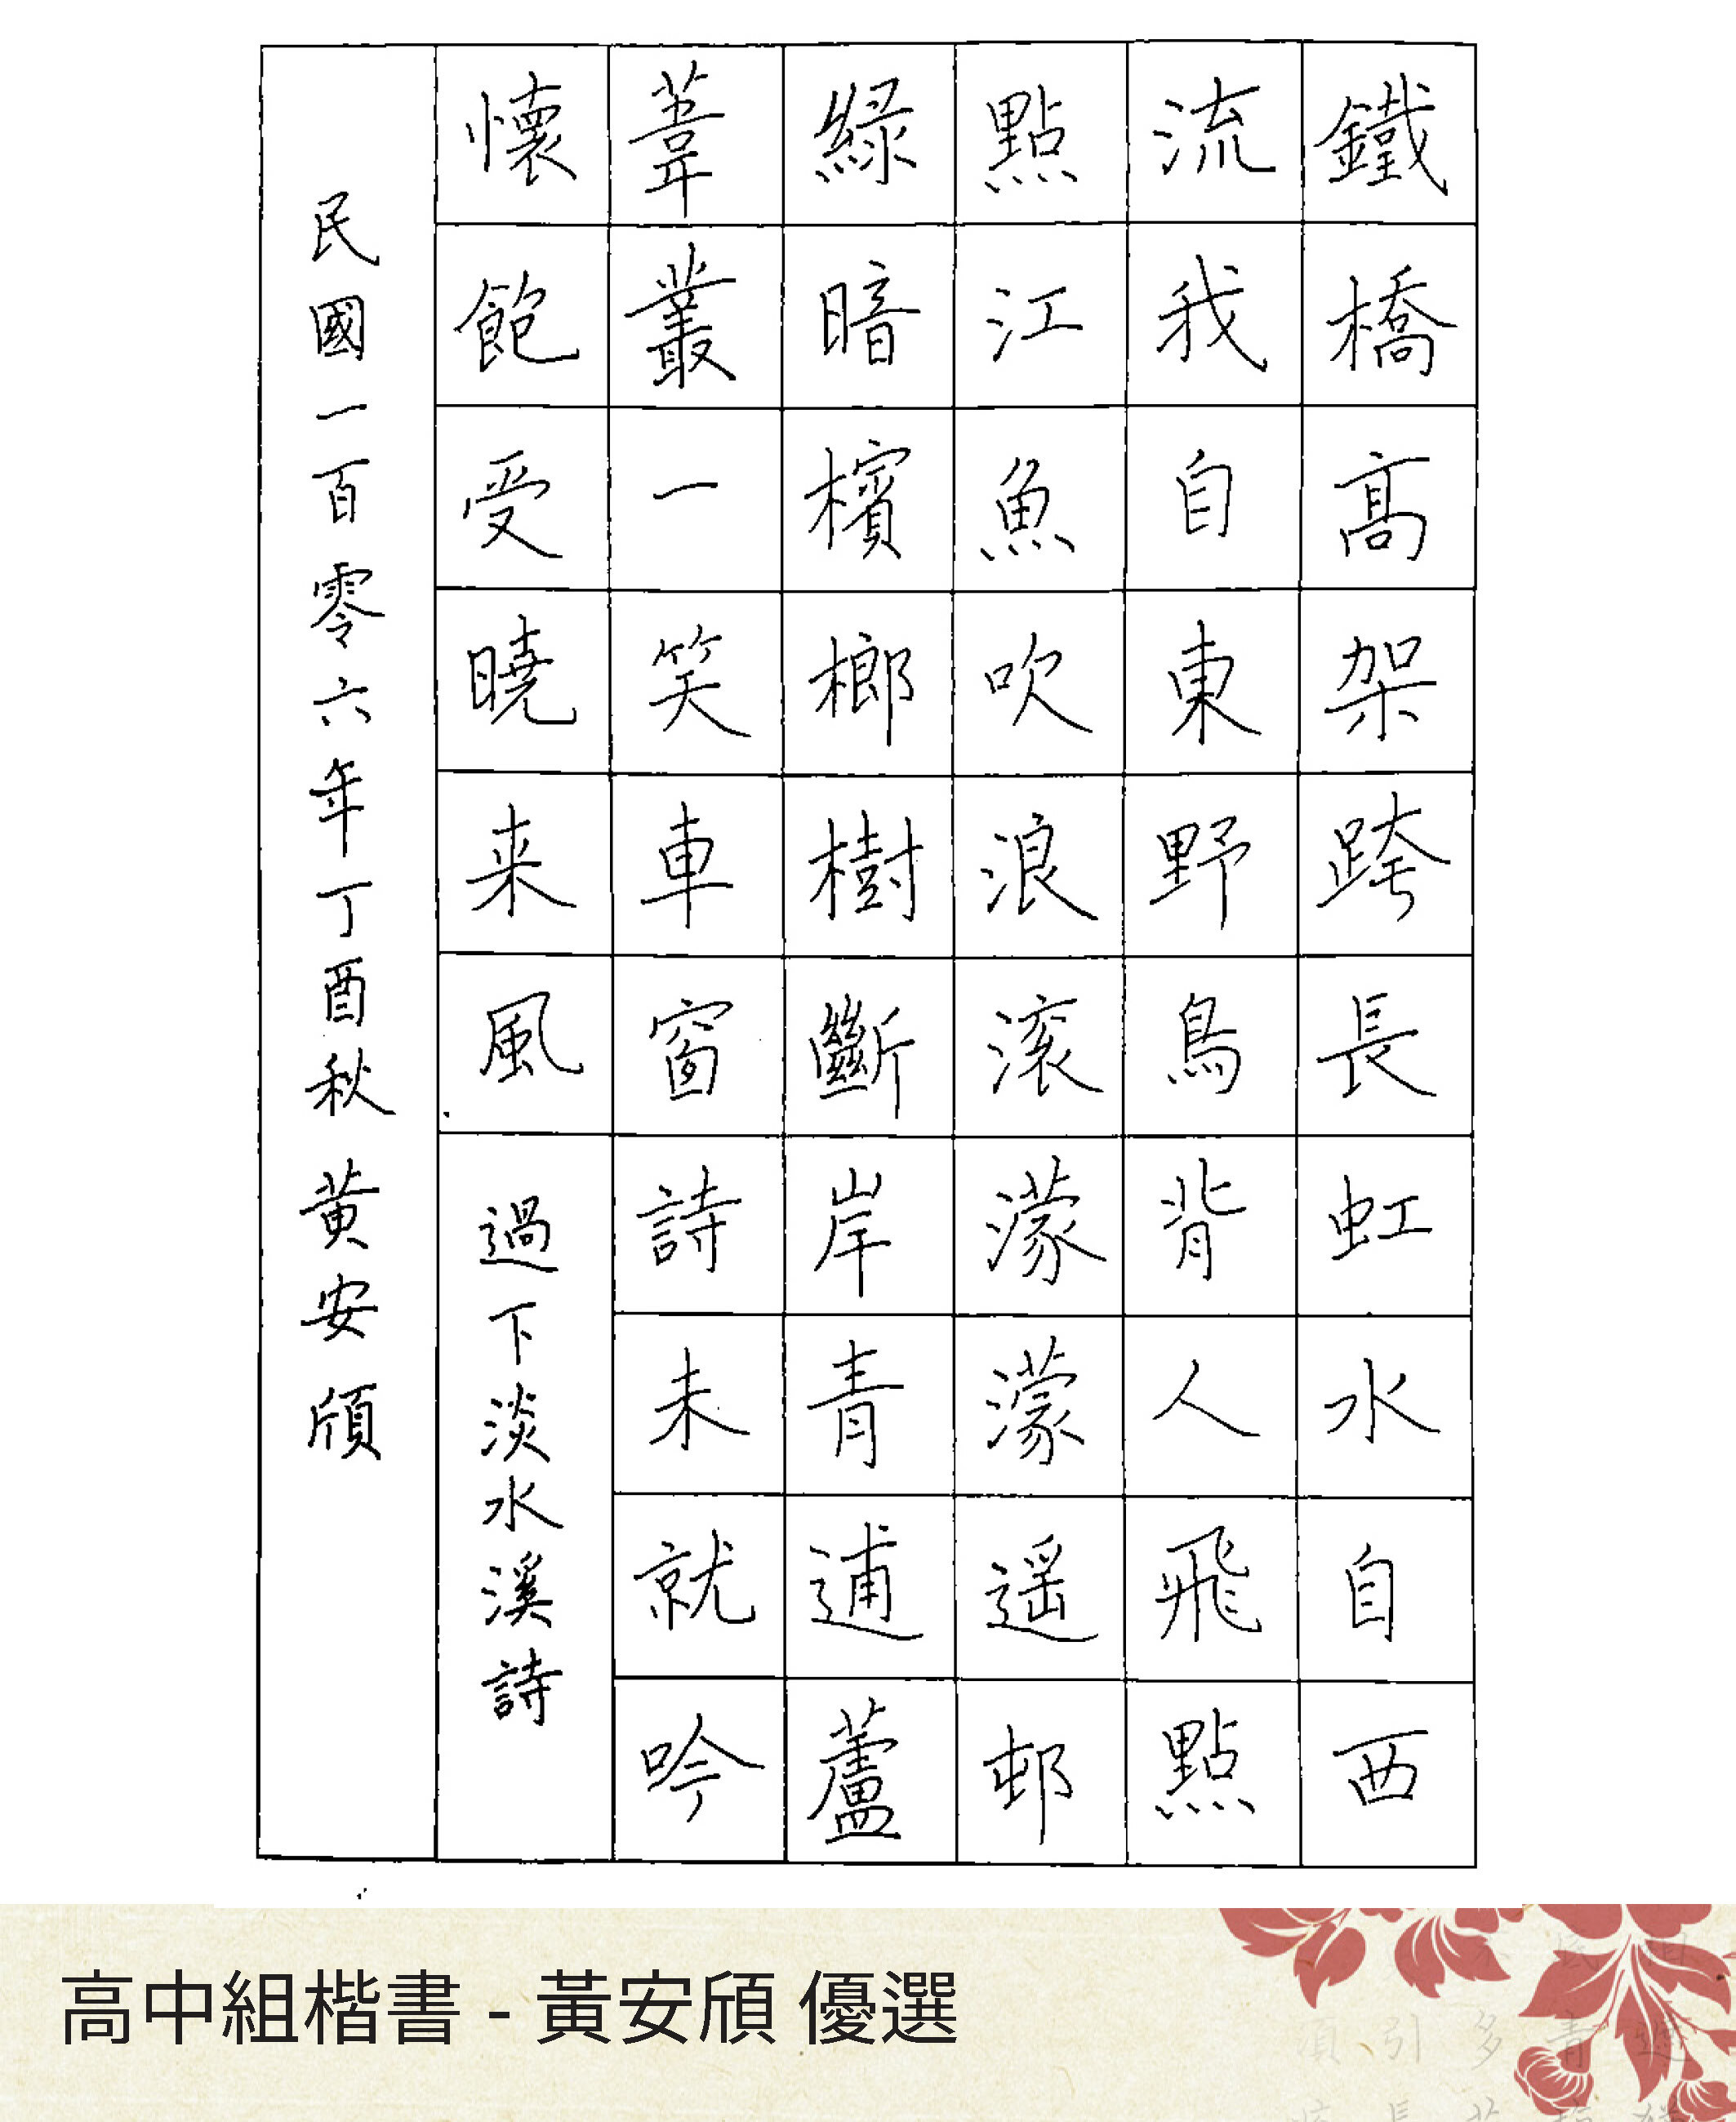 鐵橋高架跨長虹水自西
流我自東野鳥背人飛點
點江魚吹浪滾濛濛遥邨
綠暗檳榔樹斷岸青逋蘆
葦叢一笑車窗詩未就吟
懷飽受曉来風
過下淡水溪詩
民國一百零六年丁酉秋 黃安頎
高中組楷書 - 黃安頎 優選